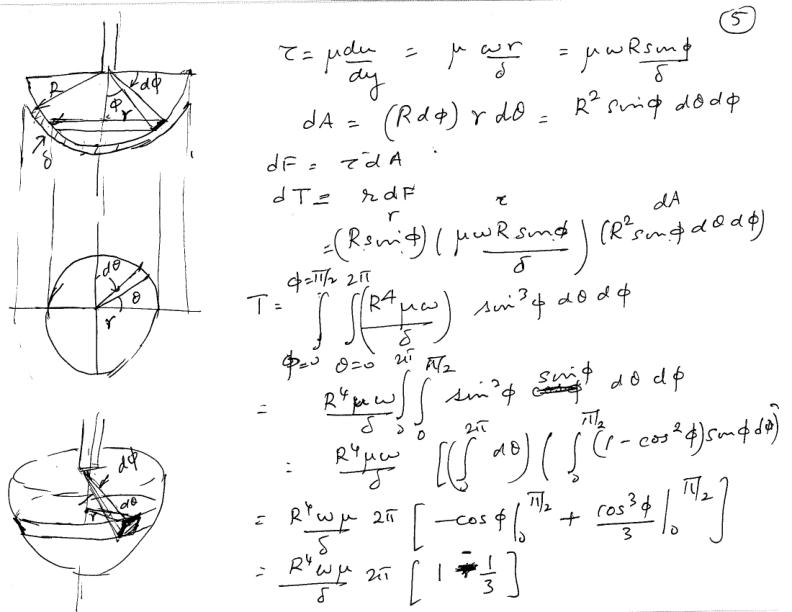 5
τ = μ du/dy = μ ωr/δ = μωR sinφ/δ
dA = (R dφ) r dθ = R² sinφ dθ dφ
dF = τ dA
dT = r dF
r τ dA
= (R sinφ) (μωR sinφ/δ) (R² sinφ dθ dφ)
T = ∫_{φ=0}^{φ=π/2} ∫_{θ=0}^{2π} (R⁴μω/δ) sin³φ dθ dφ
= R⁴μω/δ ∫_0^{2π} ∫_0^{π/2} sin²φ sinφ dθ dφ
= R⁴μω/δ [(∫_0^{2π} dθ) (∫_0^{π/2} (1 - cos²φ) sinφ dφ)]
= R⁴ωμ/δ 2π [-cosφ |_0^{π/2} + cos³φ/3 |_0^{π/2}]
= R⁴ωμ/δ 2π [1 - 1/3]
R φ dφ
r
δ
dθ
θ
r
dφ
dθ
r